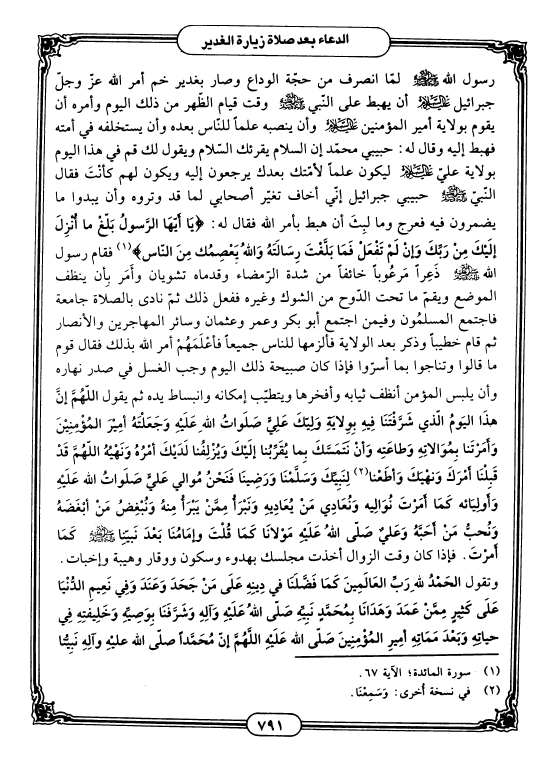 الدعاء بعد صلاة زيارة الغدير
رسول الله ﷺ لمّا انصرف من حجّة الوداع وصار بغدير خم أمر الله عزّ وجلّ
جبرائيل عليه السلام أن يهبط على النّبي ﷺ وقت قيام الظّهر من ذلك اليوم وأمره أن
يقوم بولاية أمير المؤمنين عليه السلام وأن ينصبه علماً للنّاس بعده وأن يستخلفه في أمته
فهبط إليه وقال له: حبيبي محمّد إن السلام يقرئك السّلام ويقول لك قم في هذا اليوم
بولاية عليّ عليه السلام ليكون علماً لأمّتك بعدك يرجعون إليه ويكون لهم كأنْتَ فقال
النّبيّ ﷺ حبيبي جبرائيل إنّي أخاف تغيّر أصحابي لما قد وتروه وأن يبدوا ما
يضمرون فيه فعرج وما لبِثَ أن هبط بأمر الله فقال له: ﴿يَا أَيّهَا الرَّسولُ بَلّغْ ما أُنْزِلَ
إلَيْكَ مِنْ رَبِّكَ وَإنْ لَمْ تَفْعَلْ فَمَا بَلَّغْتَ رِسَالَتَهُ وَاللهُ يَعْصِمُك مِنَ النّاس﴾(١) فقام رسول
الله ﷺ ذَعِراً مَرعُوباً خائفاً من شدة الرّمضاء وقدماه تشويان وأمَر بِأن ينظف
الموضع ويقمّ ما تحت الدّوح من الشوك وغيره ففعل ذلك ثمّ نادى بالصلاة جامعة
فاجتمع المسلمُون وفيمن اجتمع أبو بكر وعمر وعثمان وسائر المهاجرين والأنصار
ثم قام خطيباً وذكر بعد الولاية فألزمها للناس جميعاً فأعْلَمَهُمْ أمر الله بذلك فقال قوم
ما قالوا وتناجوا بما أسرّوا فإذا كان صبيحة ذلك اليوم وجب الغسل في صدر نهاره
وأن يلبس المؤمن أنظف ثيابه وأفخرها ويتطيّب إمكانه وانبساط يده ثم يقول اللّهُمَّ إنَّ
هذا اليَومُ الّذي شَرَّفْتَنَا فِيهِ بِوِلايَةِ وَلِيّكَ عَلِيّ صَلَواتُ الله ِعَلَيْهِ وَجَعَلْتَهُ أَمِيرَ المُؤْمِنِينَ
وَأَمَرْتَنا بِمُوَالاتِهِ وطَاعَتِهِ وأَنْ نَتَمَسَّكَ بِما يُقَرِّبُنا إلَيْكَ وَيُزْلِفُنا لَدَيْكَ أَمْرُهُ وَنَهْيُهُ اللّهُمَّ قَدْ
قَبِلْنَا أَمْرَكَ وَنَهْيَكَ وَأَطَعْنا(٢) لِنَبِيِّكَ وَسَلَّمْنَا وَرَضِينَا فَنَحْنُ مُوالي عَلَيّ صَلَواتُ الله عَلَيْهِ
وَأَوِليَائه كَمَا أَمَرْتَ نُوَالِيهِ وَنُعَادِي مَنْ يُعَادِيهِ وَنَبْرَأُ مِمَّنْ يَبْرَأُ مِنْهُ وَنُبْغِضُ مَنْ أَبْغَضَهُ
وَنُحبُّ مَنْ أَحَبَّهُ وَعَلِيٌّ صَلَّى اللهُ عَلَيْهِ مَوْلانَا كَمَا قُلْتَ وَإمَامُنَا بَعْدَ نَبِيِّنَا ﷺ كَمَا
أَمَرْتَ. فإذا كان وقت الزوال أخذت مجلسك بهدوء وسكون ووقار وهيبة وإخبات.
وتقول الحَمْدُ لله رَبِّ العَالَمِينَ كَمَا فَضَّلَنَا في دِينِهِ عَلَى مَنْ جَحَدَ وَعَنَدَ وَفِي نَعِيمِ الدُّنْيَا
عَلَى كَثِيرٍ مِمَّنْ عَمَدَ وَهَدَانَا بِمُحَمَّدٍ نَبِيِّهِ صَلَّى اللهُ عَلَيْهِ وَآلِهِ وَشَرَّفَنَا بِوَصِيِّهِ وَخَلِيفَتِهِ فِي
حياتِهِ وَبَعْدَ مَمَاتِهِ أَمِيرِ المُؤْمِنِينَ صَلَّى الله عَلَيْهِ اللّهُمَّ إنّ مُحَمَّداً صلّى الله عليهِ وآلِهِ نَبِيُّنا
(١) سورة المائدة؛ الآية ٦٧.
(٢) في نسخة أُخرى: وَسَمِعْنَا.
٧٩١